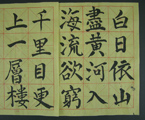 白日依山
盡黃河入
海流欲窮
千里目更
上一層樓